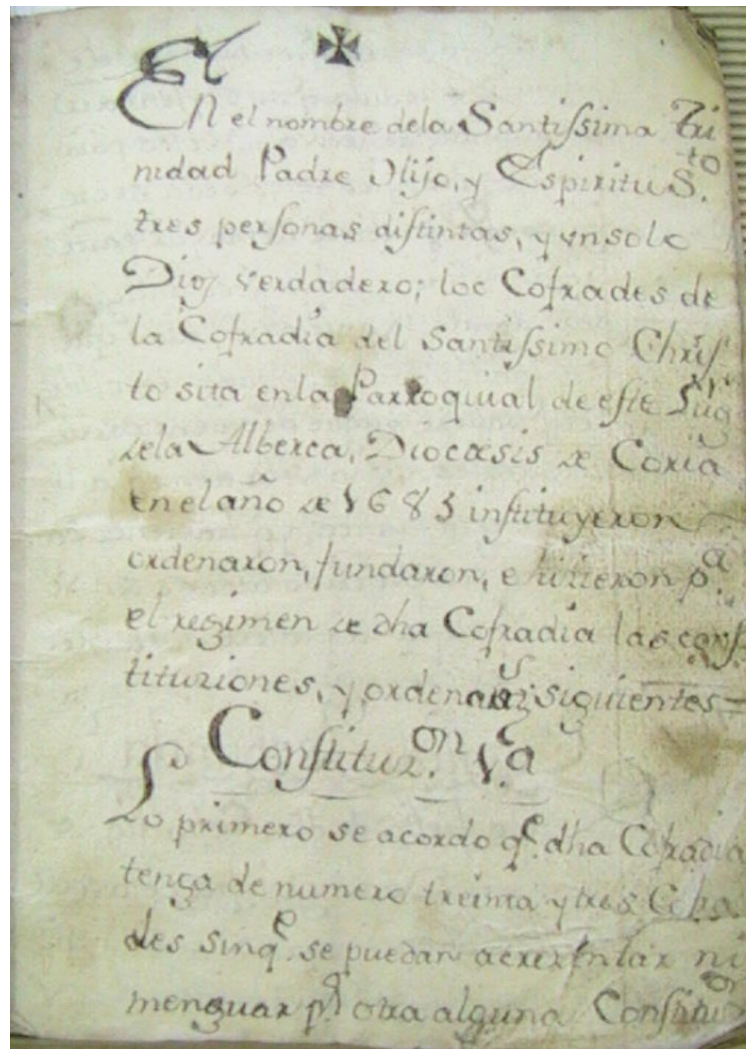 En el nombre dela Santissima Tri
nidad Padre Hijo, y Espiritu S.to
tres personas distintas, y un solo
Dios verdadero; los Cofrades de
la Cofradia del Santissimo Chris
to sita enla Parroquial de este Lug.r
dela Alberca, Diocæsis de Coria
en el año de 1685 instituyeron
ordenaron, fundaron, e hicieron p.a
el regimen de dha Cofradia las cons
tituziones, y ordenanz.s siguientes =
Constituz.on 1.a
Lo primero se acordo q.e dha Cofradia
tenga de numero treinta y tres Cofra
des sinq.e se puedan acrezentar ni
menguar p.r otra alguna Constituz.on